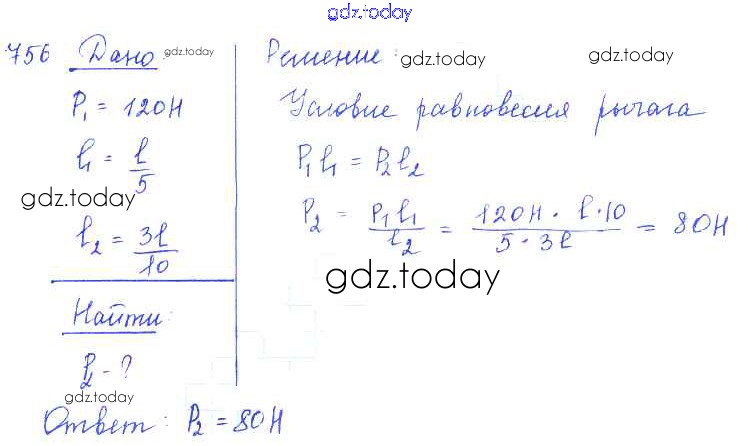 gdz.today
756 Дано: gdz.today
P₁ = 120Н
l₁ = l/5
gdz.today
l₂ = 3l/10
Найти:
P₂ - ?
gdz.today
Решение: gdz.today gdz.today
Условие равновесия рычага
P₁l₁ = P₂l₂
P₂ = P₁l₁/l₂ = 120Н · l · 10/5 · 3l = 80Н
gdz.today
Ответ: P₂ = 80Н